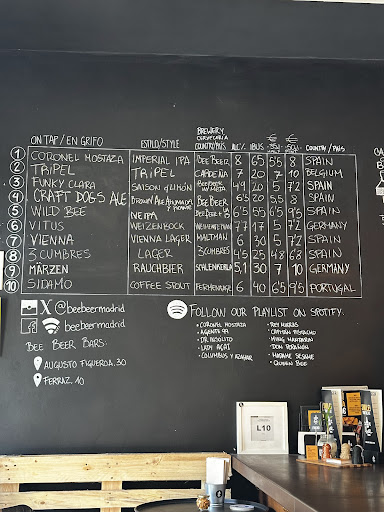 ON TAP / EN GRIFO ESTILO/STYLE BREWERY CERVECERÍA COUNTRY/PAÍS ALC% IBUS € € COUNTRY / PAÍS
1 CORONEL MOSTAZA IMPERIAL IPA BEE BEER 8 65 5'5 8 SPAIN
2 TRIPEL TRIPEL 7 20 7 10 BELGIUM
3 FUNKY CLARA SAISON d LIMÓN BEE BEER 4'9 20 5 7'2 SPAIN
4 CRAFT DOGS ALE BROWN ALE BEE BEER 6'5 20 5'5 8 SPAIN
5 WILD BEE NEIPA BEE BEER 6'5 55 6'5 9'5 SPAIN
6 VITUS WEIZENBOCK 7'7 17 5 7'2 GERMANY
7 VIENNA VIENNA LAGER MALTMAN 6 30 5 7'2 SPAIN
8 3 CUMBRES LAGER 3 CUMBRES 4'5 25 4'8 6'8 SPAIN
9 MÄRZEN RAUCHBIER SCHLENKERLA 5,1 30 7 10 GERMANY
10 SIDAMO COFFEE STOUT FERMENTAGE 6 40 6'5 9'5 PORTUGAL
X @beebeermadrid
f beebeermadrid
BEE BEER BARS:
AUGUSTO FIGUEROA, 30
FERRAZ, 10
FOLLOW OUR PLAYLIST ON SPOTIFY:
• CORONEL MOSTAZA
• AGENTE 99
• LADY AÇAÍ
• COLUMBUS Y AZAHAR
• CAPITÁN PISTACHO
• MING MANDARIN
• MADAME SESAME
• QUEEN BEE
L10